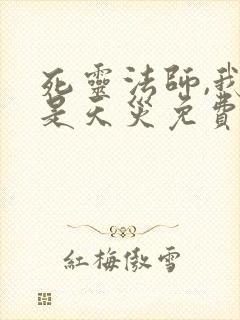 死靈法師,我
是天災免費
紅梅傲雪